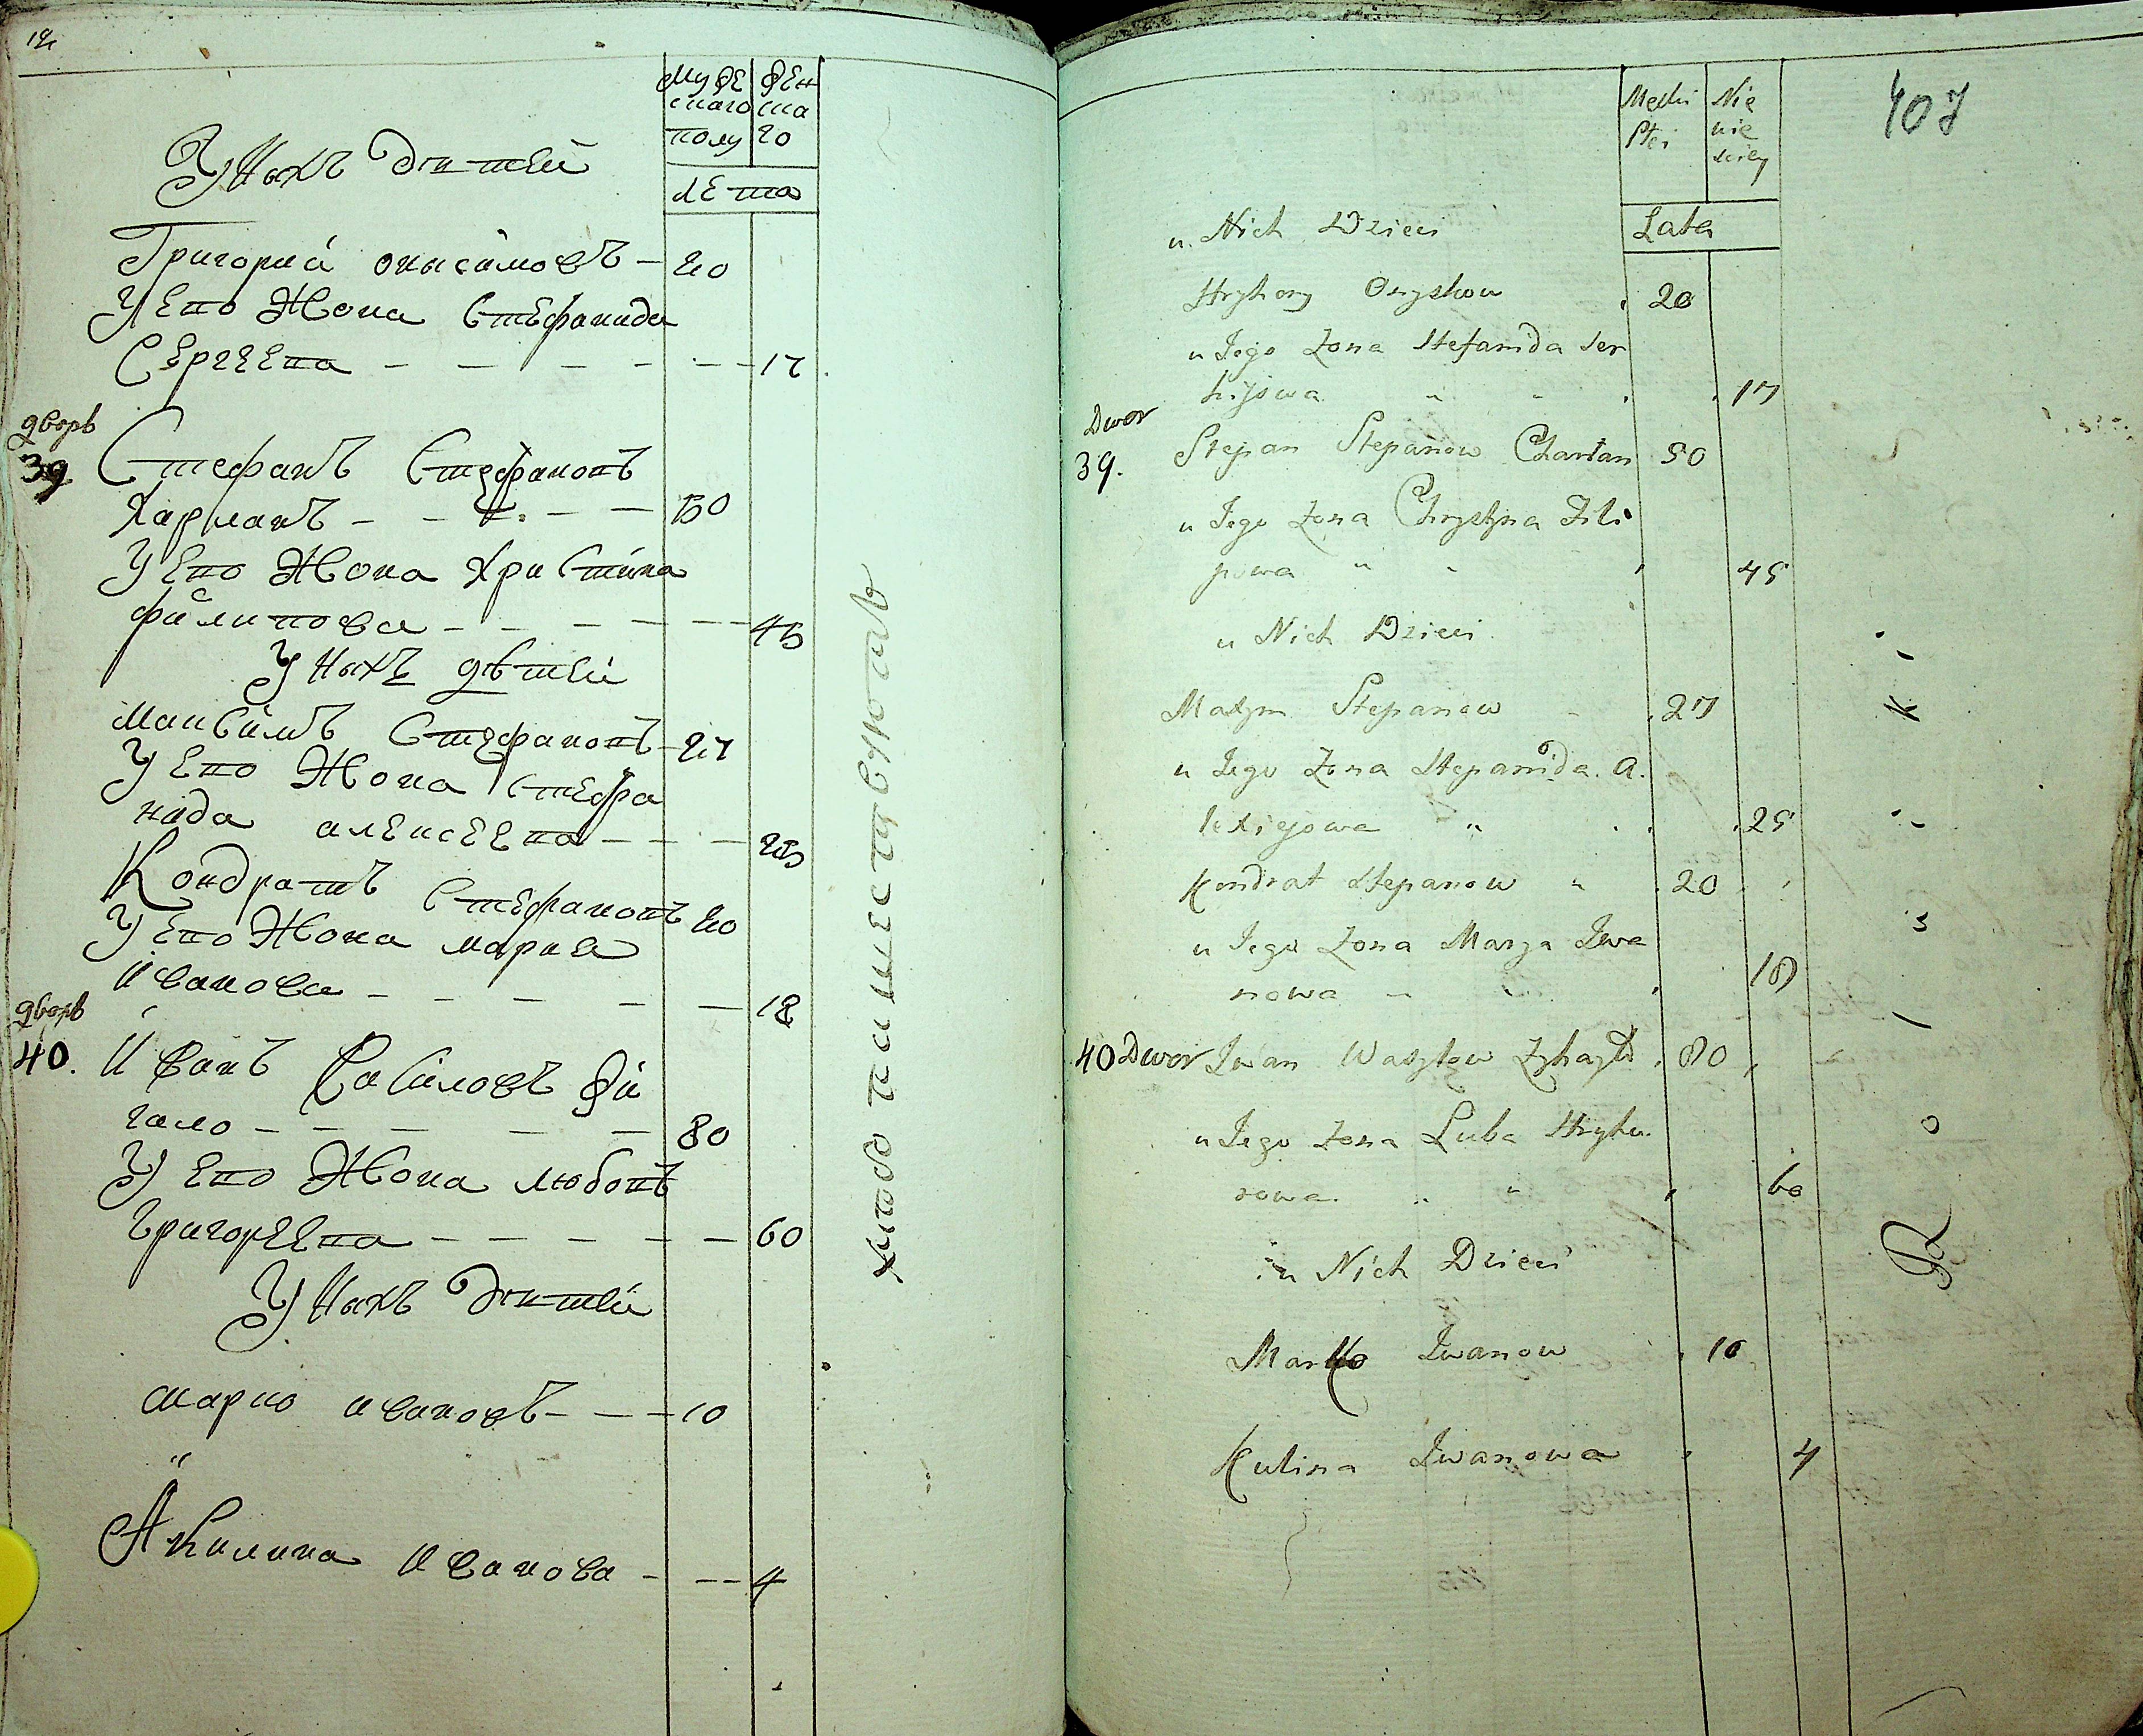 Муже
скаго
полу
Жен
ска
го
лета
У Нихъ дѣтей
Григорий Онисимовъ — 20
У Ево Жена Стефанида
Сергеева — — — — — 17
дворъ
39 Стефанъ Стефановъ
Харланъ — — — — 50
У Ево Жена Христина
Филипова — — — — — 45
У Нихъ дѣтей
Максимъ Стефановъ — 27
У Ево Жона Стефа
нида алексеева — — — 25
Кондратъ Стефановъ 20
У Ево Жона мария
Иванова — — — — — 18
дворъ
40. Иванъ Василовъ Жи
гало — — — — — 80
У Ево Жона любовъ
Григореева — — — — — — 60
У Нихъ дѣтей
марко ивановъ — — — 10
Акилина Иванова — — — 4
407
Męski
Płci
Nie
wie
sciey
Lata
u Nich Dzieci
Hryhory Onyskow 20
u Jego Zona Stefanida Ser
hijowa 17
Dwor
39. Stepan Stepanow Charlan 50
u Jego Zona Chrystyna Fili
powa 45
u Nich Dzieci
Maxym Stepanow 27
u Jego Zona Stepanida A
lexiejowa 25
Kondrat Stepanow 20
u Jego Zona Marya Iwa
nowa 18
40 Dwor Iwan Wasylow Zyhayło 80
u Jego Zona Luba Hryho
rowa 60
u Nich Dzieci
Marko Iwanow 10
Kulina Iwanowa 4